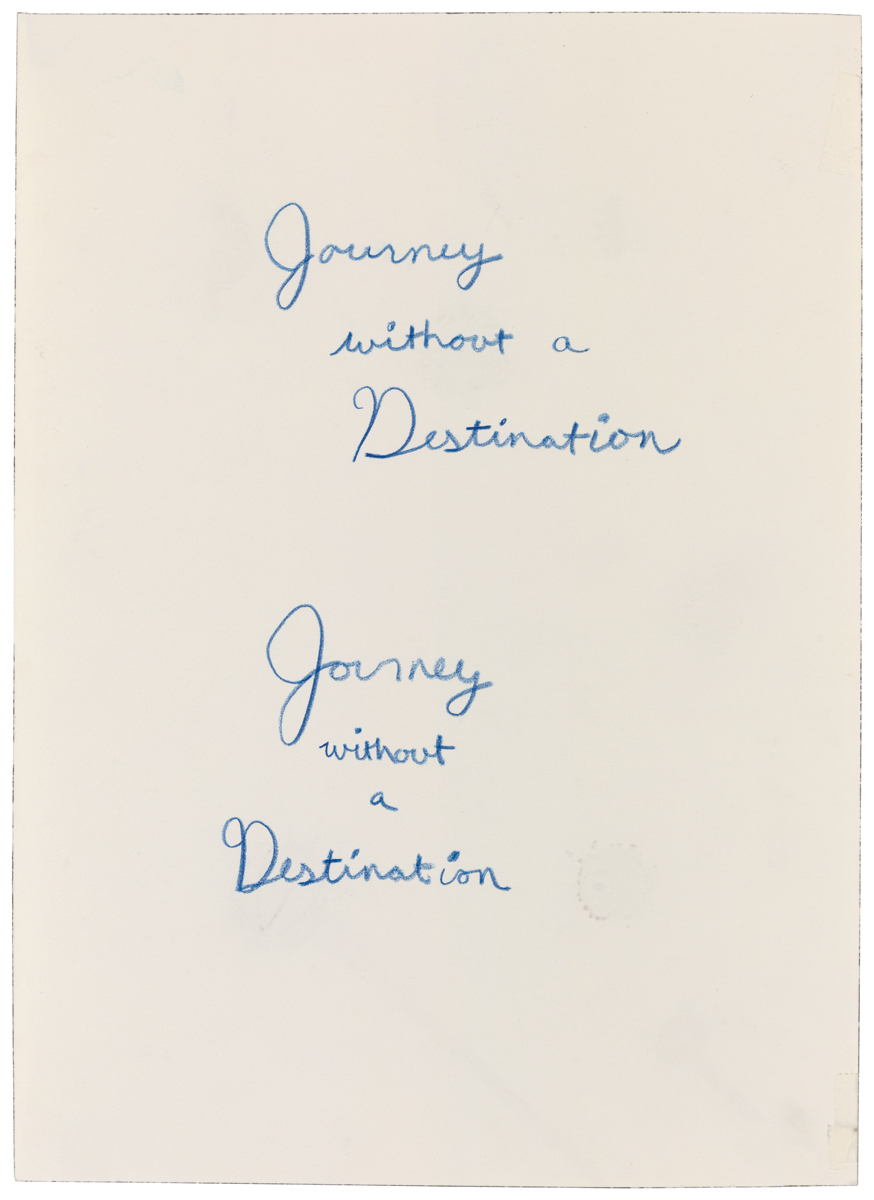 Journey
without a
Destination
Journey
without
a
Destination